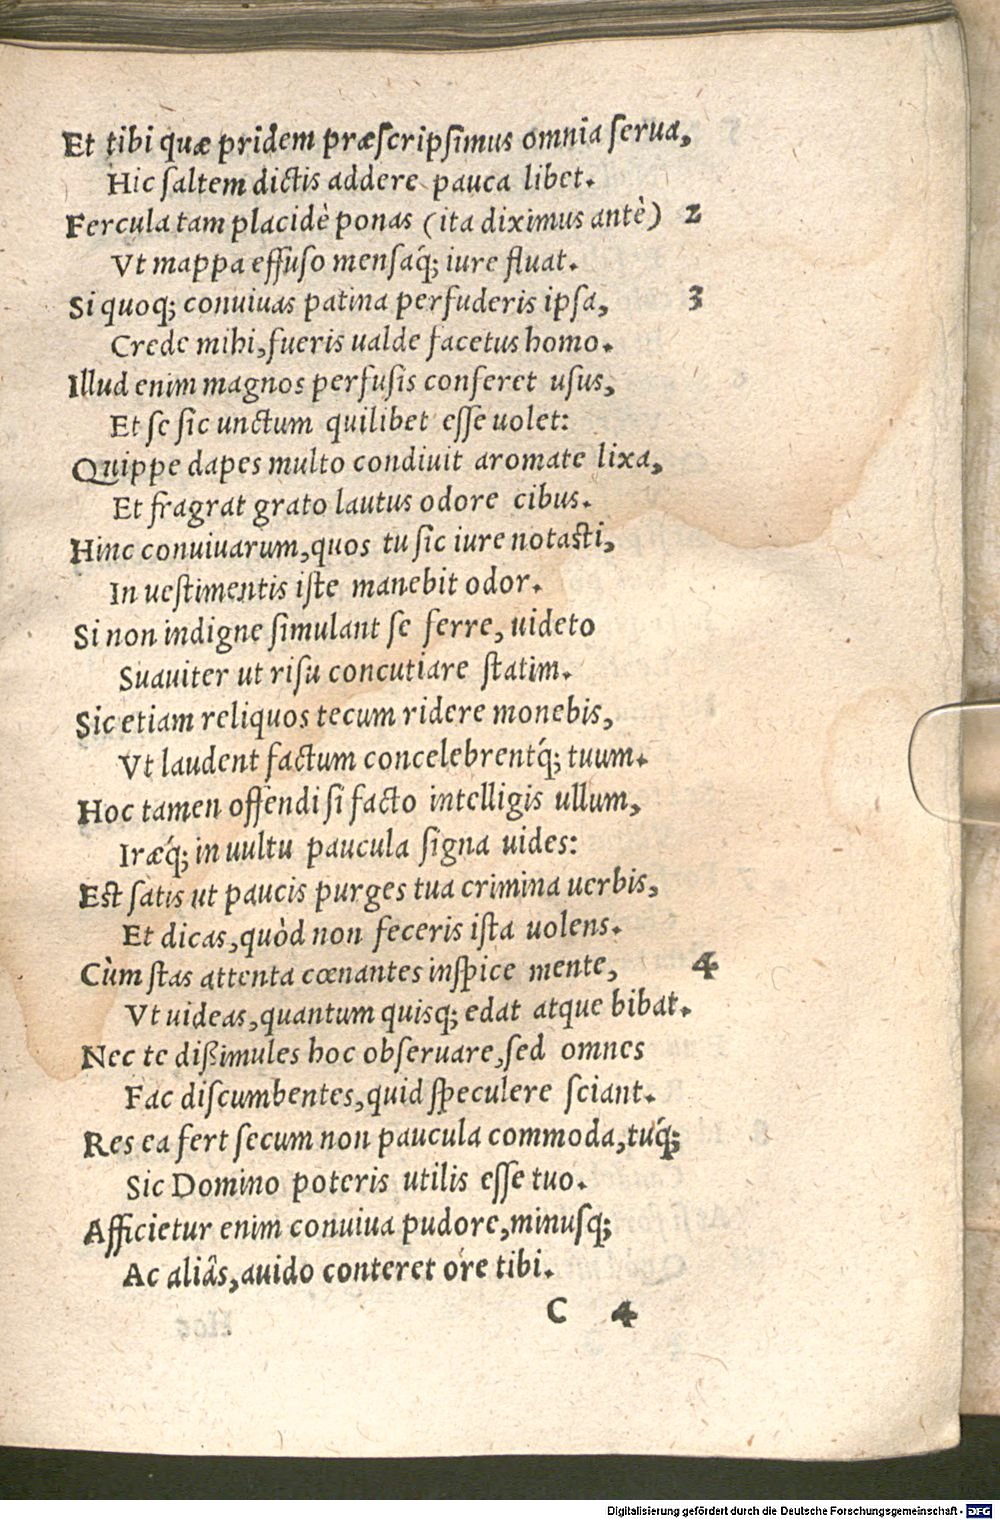 Et tibi quæ pridem præscripsimus omnia serua,
Hic saltem dictis addere pauca libet.
Fercula tam placidè ponas (ita diximus antè) 2
Vt mappa effuso mensaq́; iure fluat.
Si quoq; conuiuas patina perfuderis ipsa, 3
Crede mihi, fueris ualde facetus homo.
Illud enim magnos perfusis conferet usus,
Et se sic unctum quilibet esse uolet:
Quippe dapes multo condiuit aromate lixa,
Et fragrat grato lautus odore cibus.
Hinc conuiuarum, quos tu sic iure notasti,
In uestimentis iste manebit odor.
Si non indigne simulant se ferre, uideto
Suauiter ut risu concutiare statim.
Sic etiam reliquos tecum ridere monebis,
Vt laudent factum concelebrentq́; tuum.
Hoc tamen offendi si facto intelligis ullum,
Iræq́; in uultu paucula signa uides:
Est satis ut paucis purges tua crimina uerbis,
Et dicas, quòd non feceris ista uolens.
Cùm stas attenta cœnantes inspice mente, 4
Vt uideas, quantum quisq; edat atque bibat.
Nec te dißimules hoc obseruare, sed omnes
Fac discumbentes, quid speculere sciant.
Res ea fert secum non paucula commoda, tuq́;
Sic Domino poteris utilis esse tuo.
Afficietur enim conuiua pudore, minusq;
Ac aliâs, auido conteret ore tibi.
C 4
Digitalisierung gefördert durch die Deutsche Forschungsgemeinschaft - DFG